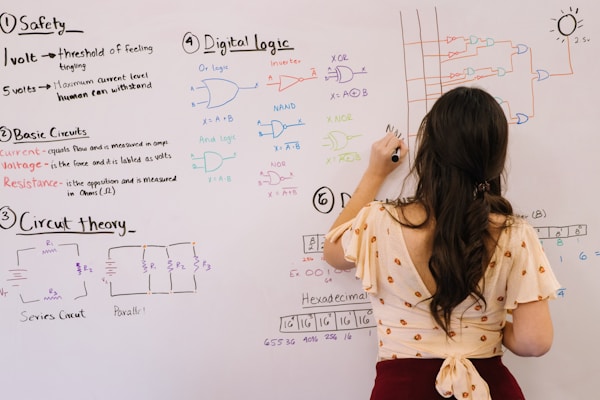 ① Safety_
1 volt → threshold of feeling
tingling
5 volts → Maximum current level
human can withstand
② Basic Circuits
Current - equals flow and is measured in amps
Voltage - is the force and it is labled as volts
Resistance - is the opposition and is measured
in Ohms (Ω)
③ Circut theory_
R₁
R₂
R₃
V_T
Series Circut
R₁
R₂
R₃
Parallel
④ Digital logic
Or logic
A
B
X = A + B
Inverter
A
A̅
X OR
A
B
X = A ⊕ B
NAND
A
B
And logic
A
B
X = A·B
X NOR
NOR
A
B
2.5
⑥ D
(B)
Hexadecimal
16⁴ 16³ 16² 16¹ 16⁰
65536 4096 256 16 1